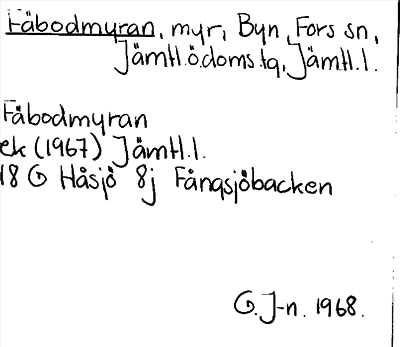 Fäbodmyran, myr, Byn, Fors sn,
Jämtl.ö.doms.tg, Jämtl.l.
Fäbodmyran
ek (1967) Jämtl.l.
18 G Håsjö 8j Fångsjöbacken
G. J-n. 1968.